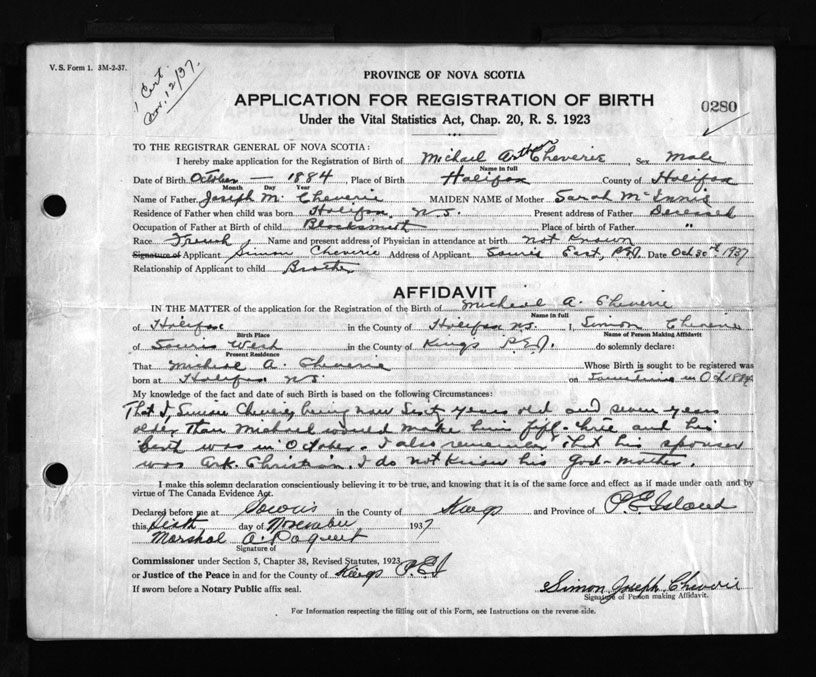 V. S. Form 1. 3M-2-37.
1 Cert.
Nov. 12/37.
PROVINCE OF NOVA SCOTIA
APPLICATION FOR REGISTRATION OF BIRTH
0280
Under the Vital Statistics Act, Chap. 20, R. S. 1923
TO THE REGISTRAR GENERAL OF NOVA SCOTIA:
I hereby make application for the Registration of Birth of Michael Arthur Cheverie Sex Male
Name in full
Date of Birth October — 1884, Place of Birth Halifax County of Halifax
Month Day Year
Name of Father Joseph M. Cheverie MAIDEN NAME of Mother Sarah McInnis
Residence of Father when child was born Halifax, N.S. Present address of Father Deceased
Occupation of Father at Birth of child Blacksmith Place of birth of Father "
Race French Name and present address of Physician in attendance at birth Not Known
Signature of Applicant Simon Cheverie Address of Applicant Souris East, P.E.I. Date Oct 30th 1937
Relationship of Applicant to child Brother
AFFIDAVIT
IN THE MATTER of the application for the Registration of the Birth of Michael A. Cheverie
Name in full
of Halifax in the County of Halifax N.S. I, Simon Cheverie
Birth Place Name of Person Making Affidavit
of Souris West in the County of Kings P.E.I. do solemnly declare:
Present Residence
That Michael A. Cheverie Whose Birth is sought to be registered was
born at Halifax N.S. on Sometime in Oct 1884
My knowledge of the fact and date of such Birth is based on the following Circumstances:
That I, Simon Cheverie, being now Sixty years old and seven years
older than Michael would make him fifty-three and his
birth was in October. I also remember that his sponser
was Ark. Christian. I do not know his God-mother.
I make this solemn declaration conscientiously believing it to be true, and knowing that it is of the same force and effect as if made under oath and by
virtue of The Canada Evidence Act.
Declared before me at Souris in the County of Kings and Province of P.E. Island
this Sixth day of November 1937
Marshal A. Paquet
Signature of
Commissioner under Section 5, Chapter 38, Revised Statutes, 1923
or Justice of the Peace in and for the County of Kings P.E.I
If sworn before a Notary Public affix seal.
Simon Joseph Cheverie
Signature of Person making Affidavit.
For Information respecting the filling out of this Form, see Instructions on the reverse side.